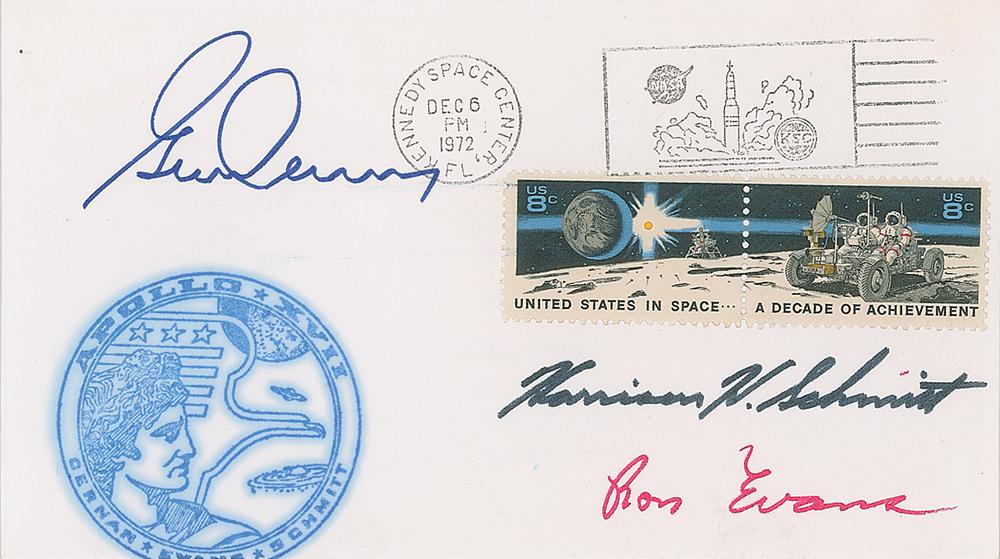 Gene Cernan
KENNEDY SPACE CENTER, FL
DEC 6
PM
1972
NASA
KSC
US
8c
US
8c
UNITED STATES IN SPACE...
A DECADE OF ACHIEVEMENT
APOLLO ★ XVII
CERNAN ★ EVANS ★ SCHMITT
Harrison H. Schmitt
Ron Evans